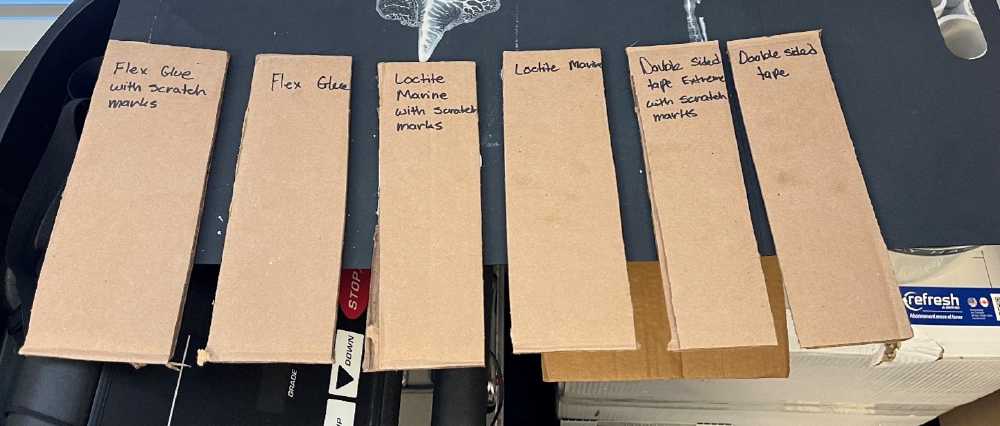 Flex Glue
with scratch
marks
Flex Glue
Loctite
Marine
with scratch
marks
Loctite Marine
Double Sided
tape Extreme
with scratch
marks
Double sided
tape
STOP
DOWN
GRADE
refresh